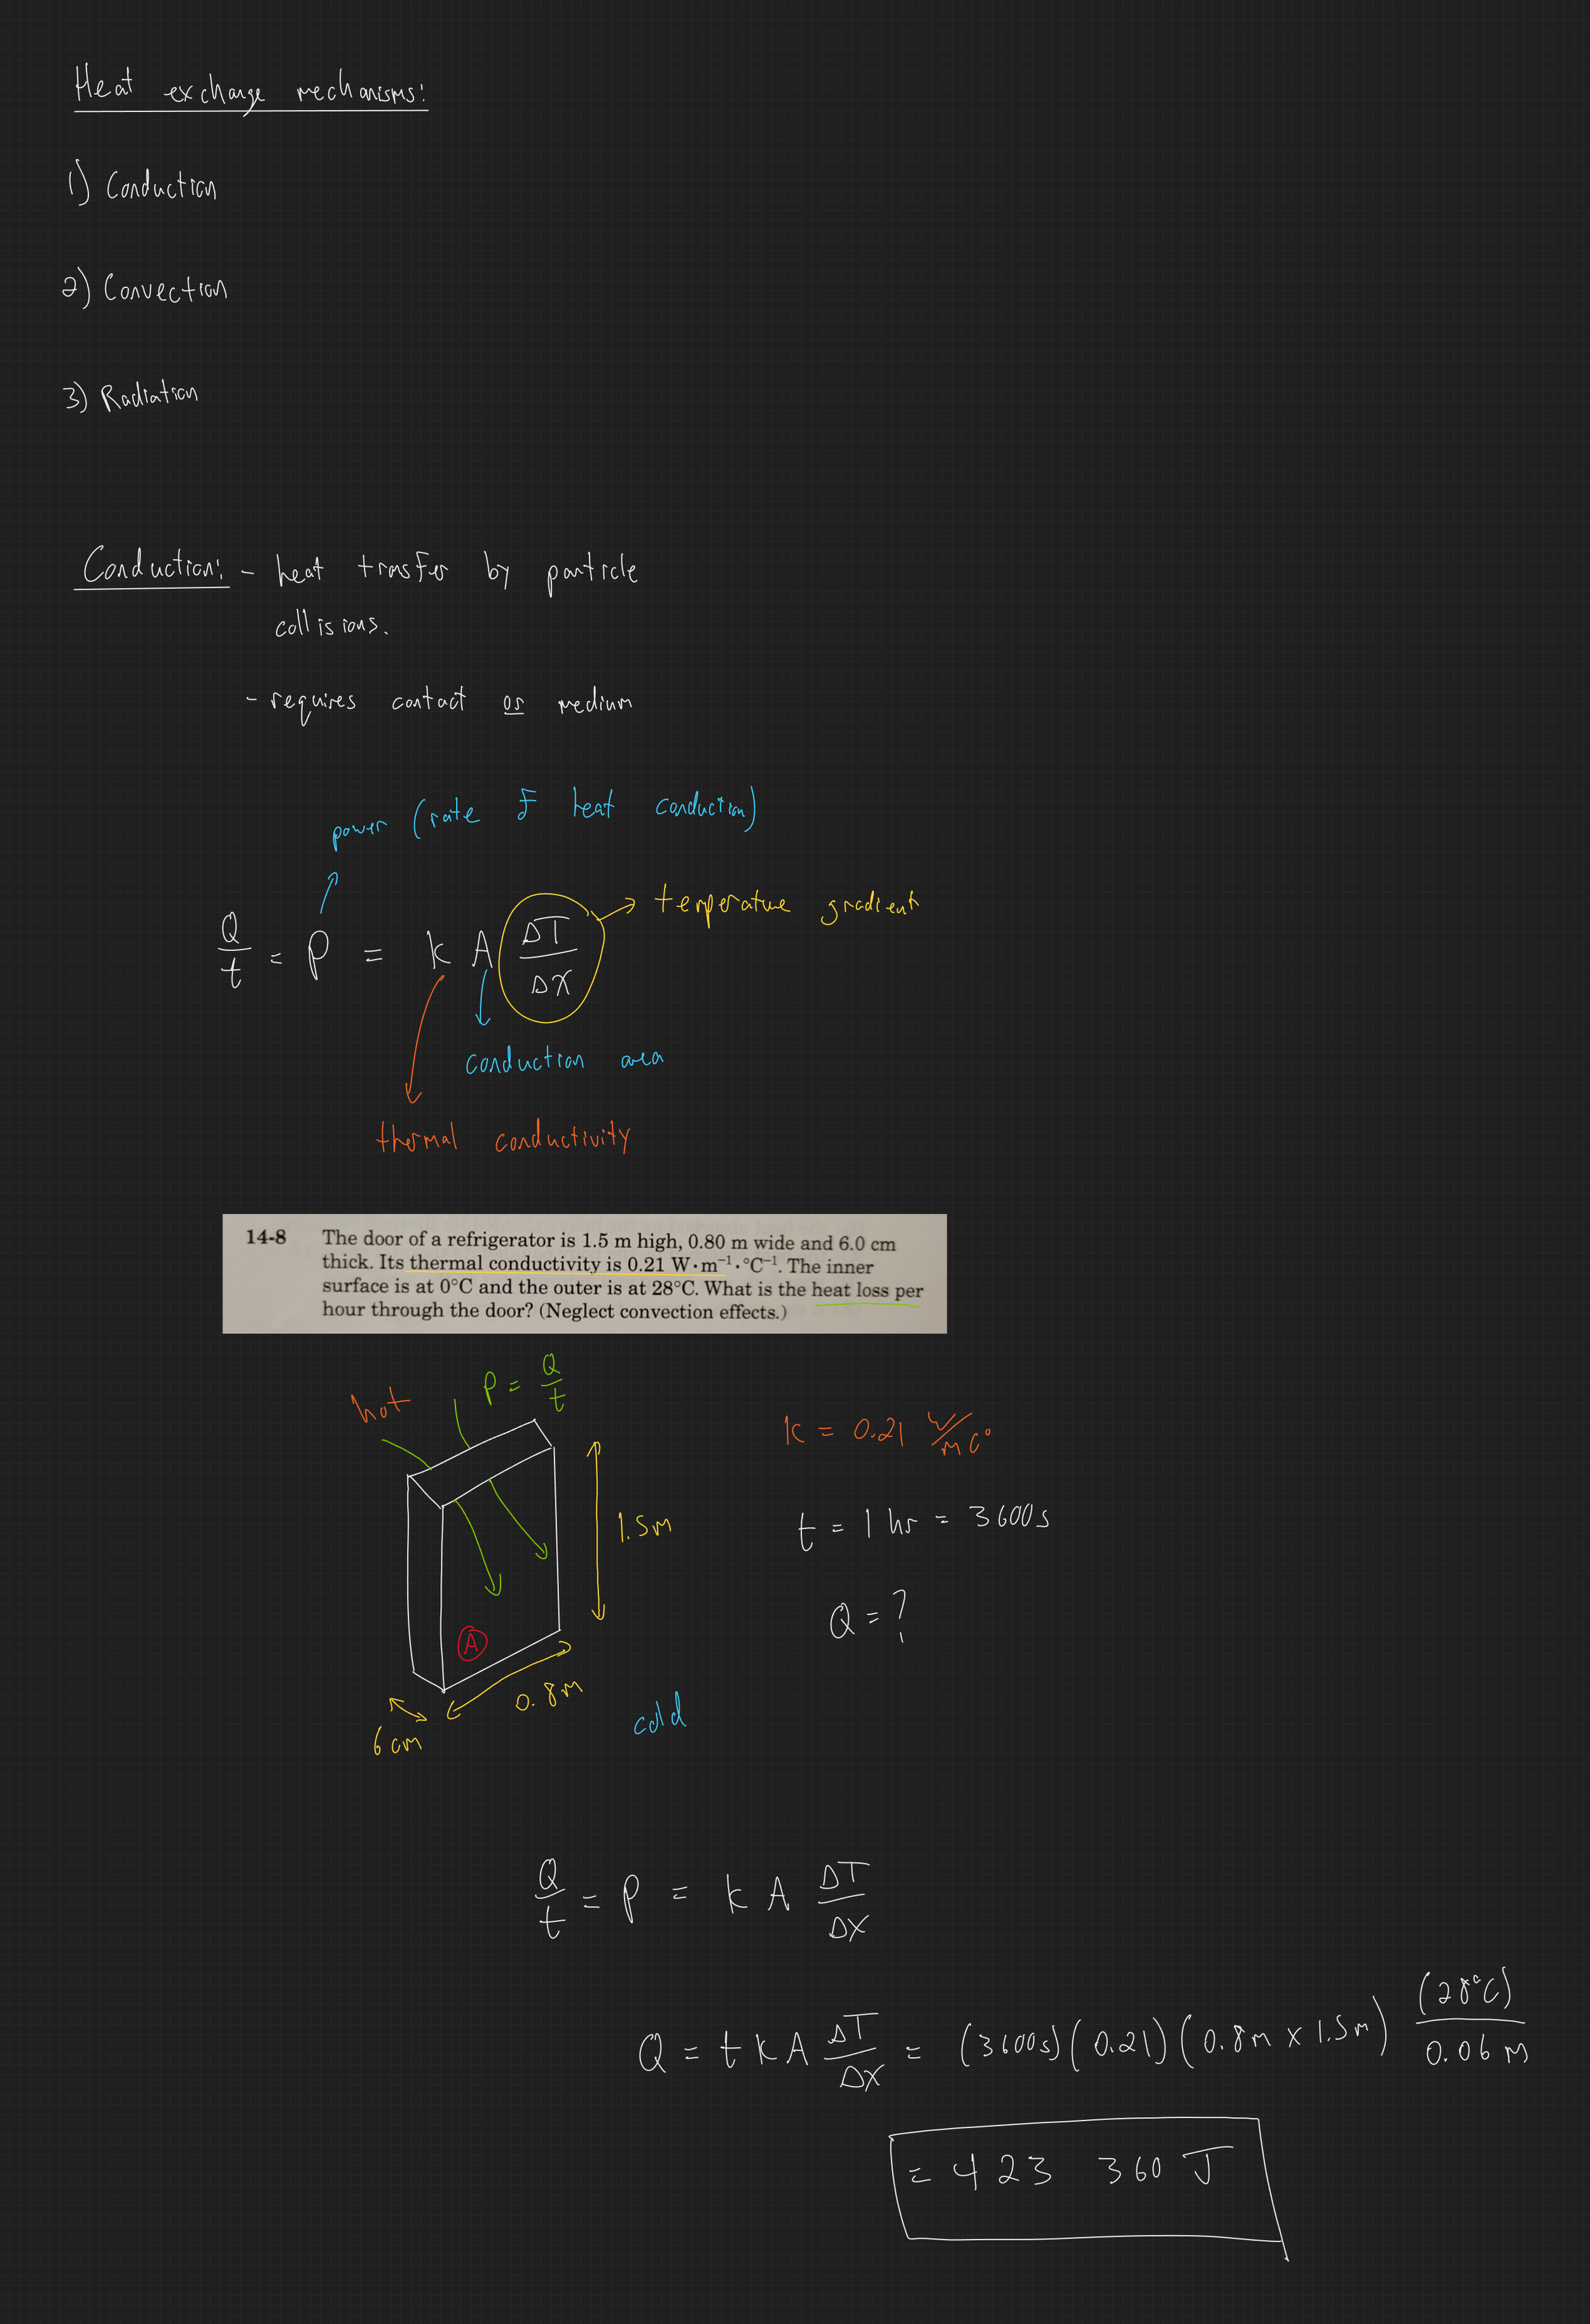 Heat exchange mechanisms:
1) Conduction
2) Convection
3) Radiation
Conduction: - heat transfer by particle
collisions.
- requires contact or medium
power (rate of heat conduction)
Q/t = P = k A ΔT/Δx → temperature gradient
conduction area
thermal conductivity
14-8 The door of a refrigerator is 1.5 m high, 0.80 m wide and 6.0 cm
thick. Its thermal conductivity is 0.21 W·m⁻¹·°C⁻¹. The inner
surface is at 0°C and the outer is at 28°C. What is the heat loss per
hour through the door? (Neglect convection effects.)
hot
P = Q/t
k = 0.21 W/mC°
1.5m
t = 1 hr = 3600s
Q = ?
A
0.8m
6cm
cold
Q/t = P = k A ΔT/Δx
Q = t k A ΔT/Δx = (3600s)(0.21)(0.8m x 1.5m) (28°C)/0.06m
= 423 360 J